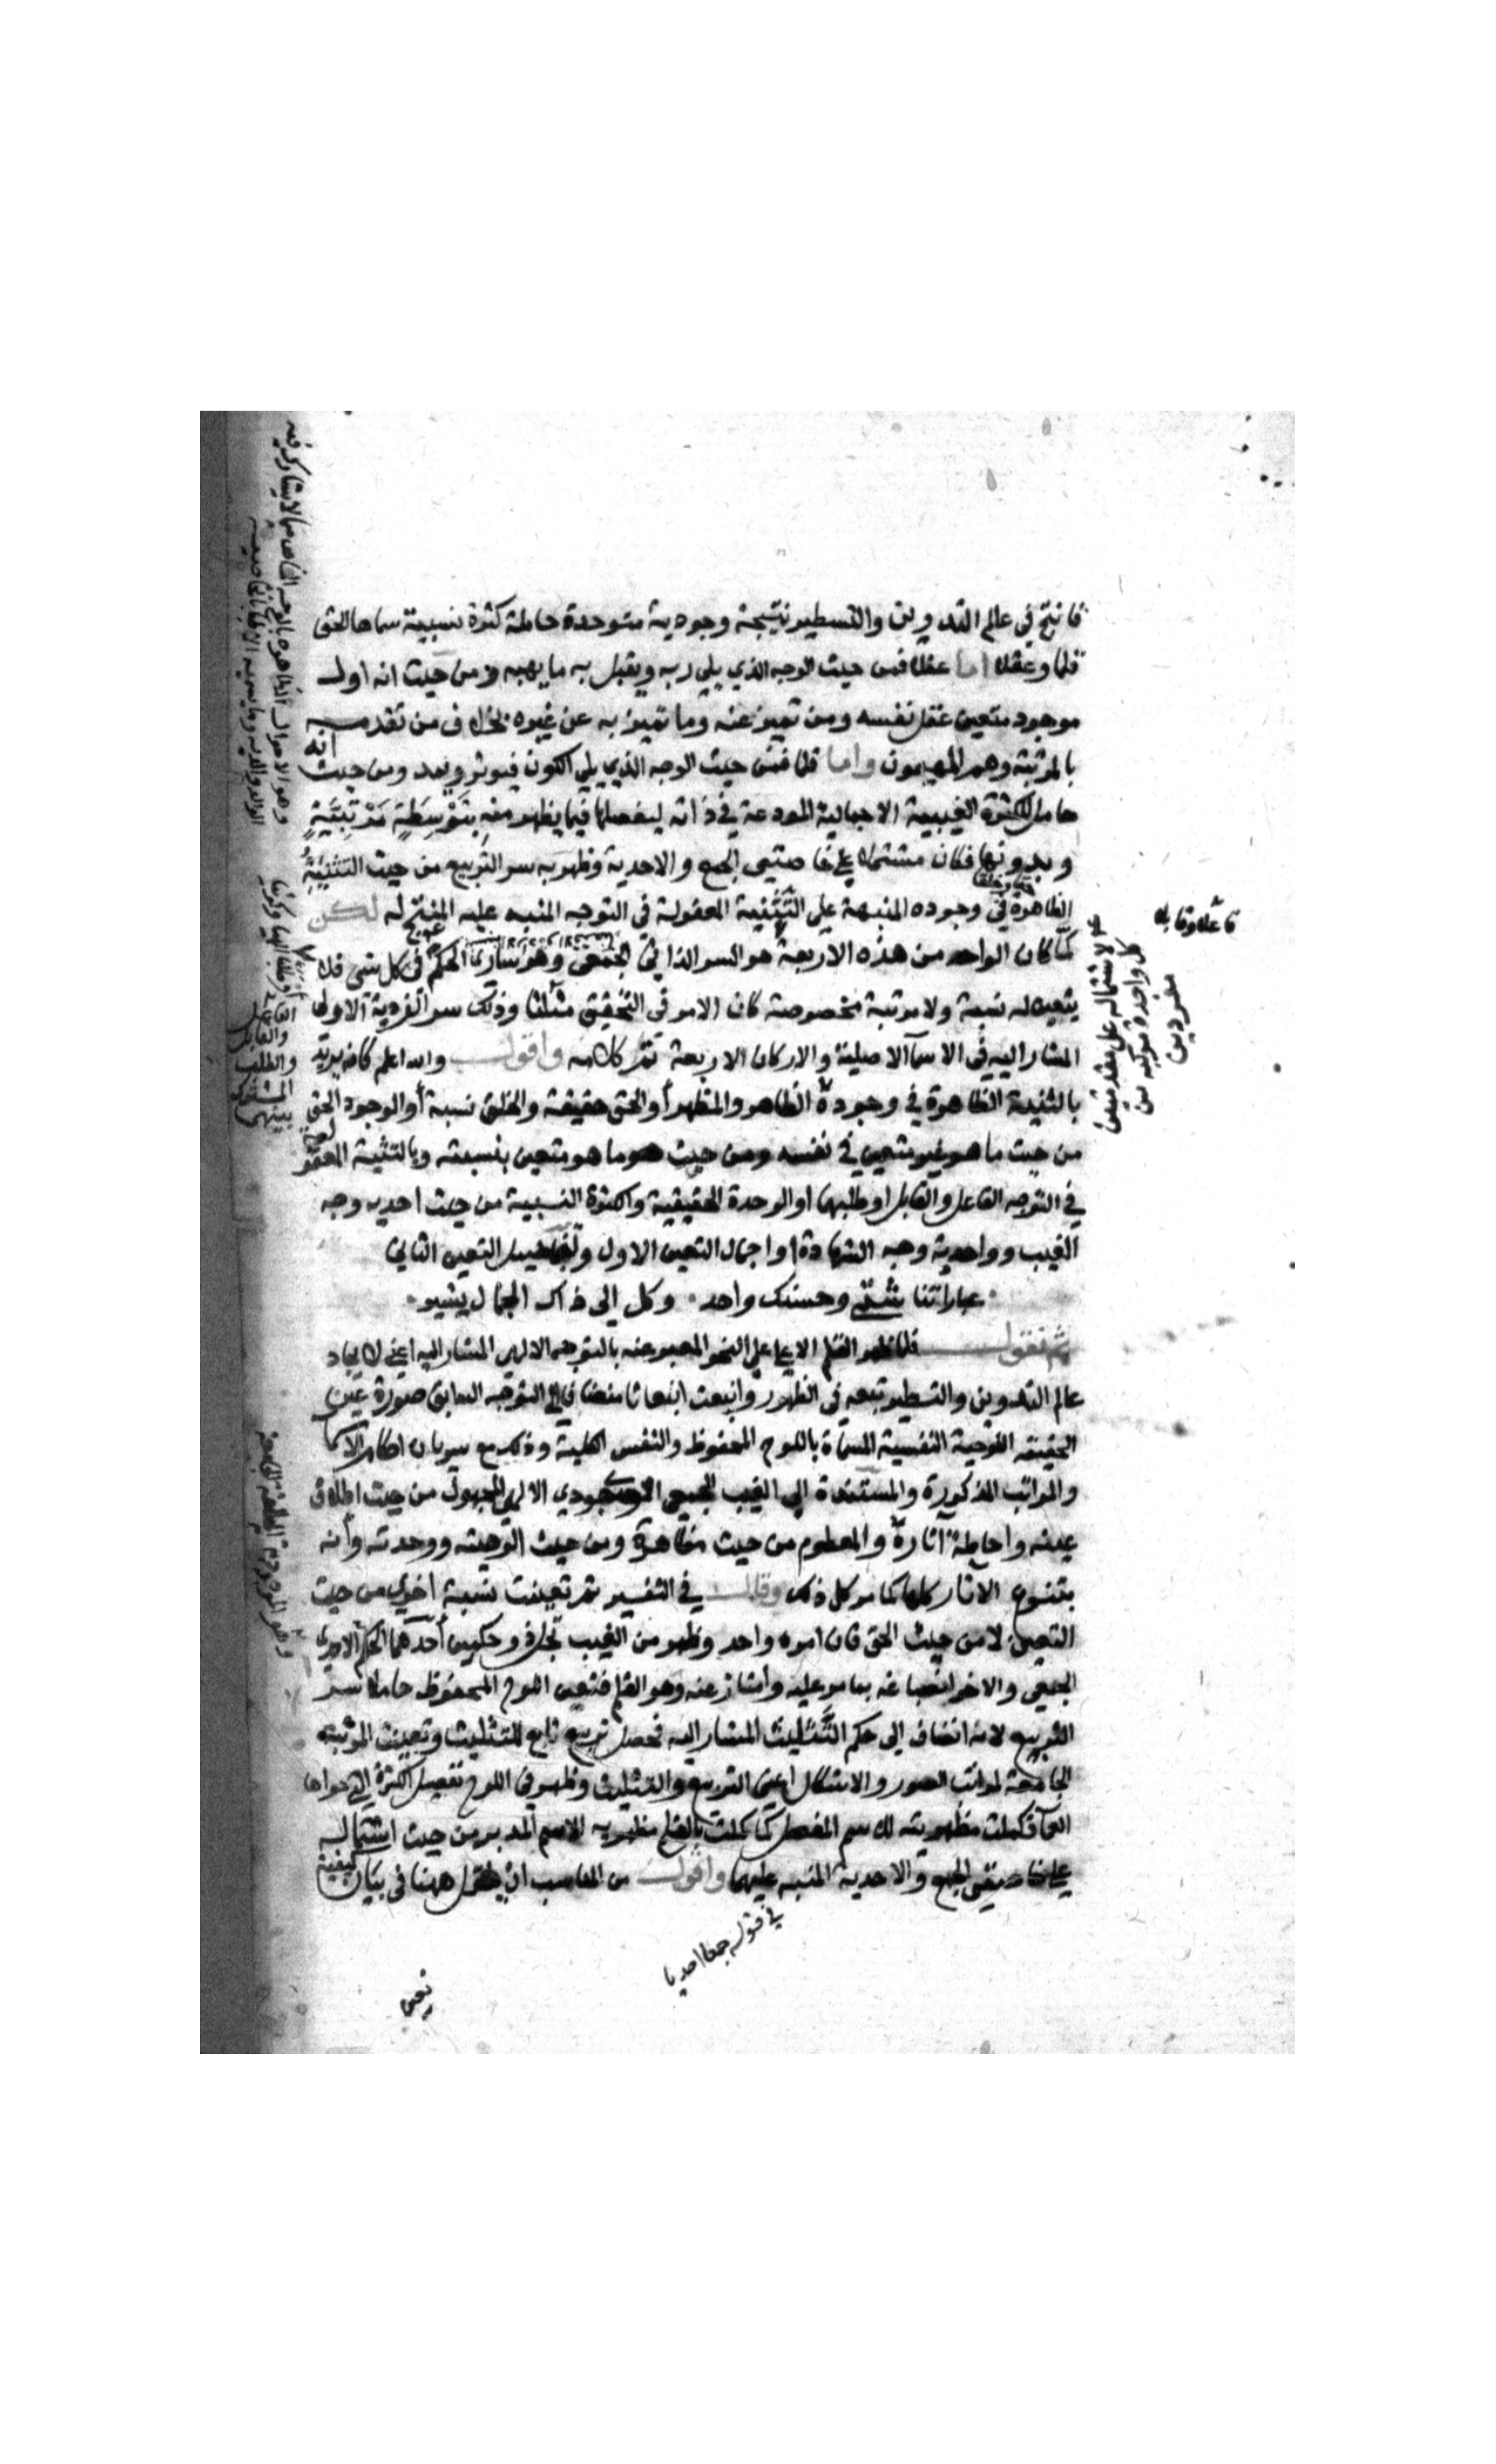 فانتج في عالم التدوين والتسطير نتيجة وجودية متوحدة حاملة كثرة نسبية سماها الحق
قلما وعقلا اما عقلا فمن حيث الوجه الذي يلي ربه ويقبل به ما يهبه ومن حيث انه اول
موجود متعين عقل نفسه ومن تميز عنه وما تميز به عن غيره بخلاف من تقدمه
بالمرتبة وهم المهيمون واما قلما فمن حيث الوجه الذي يلي الكون فيوثر ويمد ومن حيث انه
حامل للكثرة الغيبية الاجمالية المودعة في ذاته ليفصلها فيما يظهر منه بتوسطة مرتبية
وبدونها فكان مشتملا على خاصيتي الجمع والاحدية وظهر به سر التربيع من حيث التثنية
الظاهرة في وجوده المنبهة على التثنية المعقولة في التوجه المنبه عليه المنتج له لكن
لما كان الواحد من هذه الاربعة هو السر الذاتي الجمعي وهو ساري الحكم في كل شي فلا
يتعين له نسبة ولا مرتبة مخصوصة كان الامر في التحقيق مثلثا وذلك سر الفردية الاولى
المشار اليه في الاسما الاصلية والاركان الاربعة تم كلامه واقول والله اعلم كانه يريد
بالتثنية الظاهرة في وجوده الظاهر والمظهر أو الحق حقيقة والخلق نسبة أو الوجود الحق
من حيث ما هو غير متعين في نفسه ومن حيث هو ما هو متعين بنسبته وبالتثنية المعقولة
في التوجه الفاعل والقابل او طلبهما او الوحدة الحقيقية والكثرة النسبية من حيث احدية وجه
الغيب وواحدية وجه الشهادة او اجمال التعين الاول وتفاصيل التعين الثاني
عباراتنا شتى وحسنك واحد وكل الى ذاك الجمال يشير
ثم نقول فلما ظهر القلم الاعلى على النحو المعبر عنه بالتوجه الالهي المشار اليه اعني لايجاد
عالم التدوين والتسطير تبعه في الظهور وانبعث انبعاثا منضافا الى التوجه السابق صورة عين
الحقيقة اللوحية النفسية المسماة باللوح المحفوظ والنفس الكلية وذلك مع سريان احكام الاسما
والمراتب المذكورة والمستندة الى الغيب الجمعي الوجودي الالهي المجهول من حيث اطلاق
عينه واحاطة آثاره والمعلوم من حيث مظاهره ومن حيث الوهيته ووحدته وأنه
بتنوع الاثار كلها كما مر كل ذلك وقال في التفسير ثم تعينت نسبة اخرى من حيث
التعين لا من حيث الحق فان امره واحد وظهر من الغيب تجل ذو حكمين أحدهما الحكم الاحدي
الجمعي والاخر انصباغه بما مر عليه وامتاز عنه وهو القلم فتعين اللوح المحفوظ حاملا سر
التربيع لانه انضاف الى حكم التثليث المشار اليه فحصل تربيع تابع للتثليث وتعينت المرتبة
الجامعة لمراتب الصور والاشكال اعني التربيع والتثليث وظهر في اللوح تفصيل الكثرة التي حواها
العما فكملت مظهرية الاسم المفصل كما كملت بالقلم مظهرية الاسم المدبر من حيث اشتماله
على خاصيتي الجمع والاحدية المنبه عليهما واقول من المناسب ان ينقل ههنا في بيان كيفية
في قوله جمعا احديا
تعين
فاعلا وقابلا
لاشتماله على مقدمتين
كل واحدة مركبة من
مفردين
الفاعل
والقابل
والطلب
المشترك
بينهما